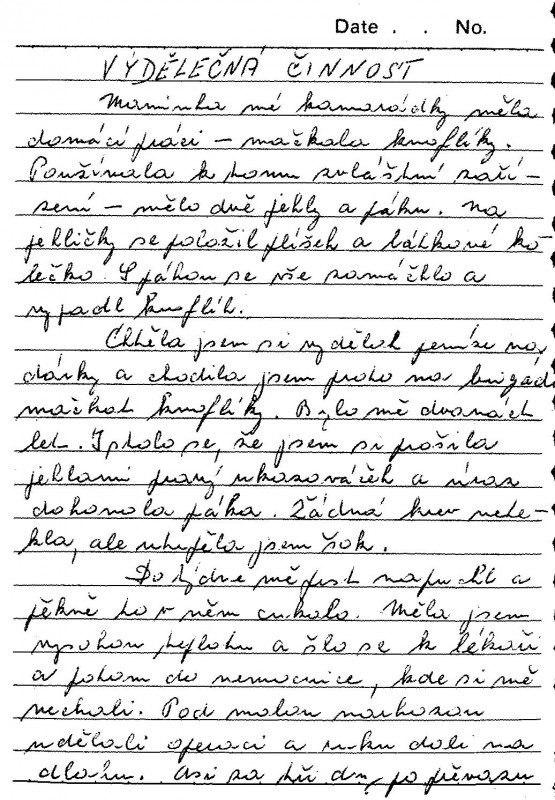 Date . . No.
VÝDĚLEČNÁ ČINNOST
Maminka mé kamarádky měla
domácí práci – mačkala knoflíky.
Používala k tomu zvláštní zaří-
zení – mělo dvě jehly a páku. Na
jehličky se položil plíšek a látkové ko-
lečko. S pákou se vše zamáčklo a
vypadl knoflík.
Chtěla jsem si vydělat peníze na
dárky a chodila jsem proto na brigád
mačkat knoflíky. Bylo mě dvanáct
let. Stalo se, že jsem si prošila
jehlami pravý ukazováček a úraz
dokonala páka. Žádná krev nete-
kla, ale utrpěla jsem šok.
Do týdne mě prst napuchl a
pěkně to v něm cukalo. Měla jsem
vysokou teplotu a šlo se k lékaři
a potom do nemocnice, kde si mě
nechali. Pod malou narkozou
udělali operaci a ruku dali na
dlahu. Asi za tři dny po převazu